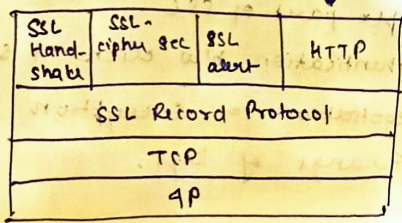 SSL
Hand-
shake
SSL-
cipher sec
SSL
alert
HTTP
SSL Record Protocol
TCP
IP